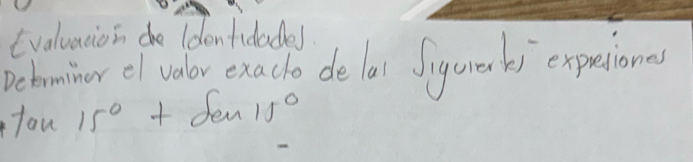 Evaluación de Identidades.
Determinar el valor exacto de las siguientes expresiones
tan 15° + Sen 15°